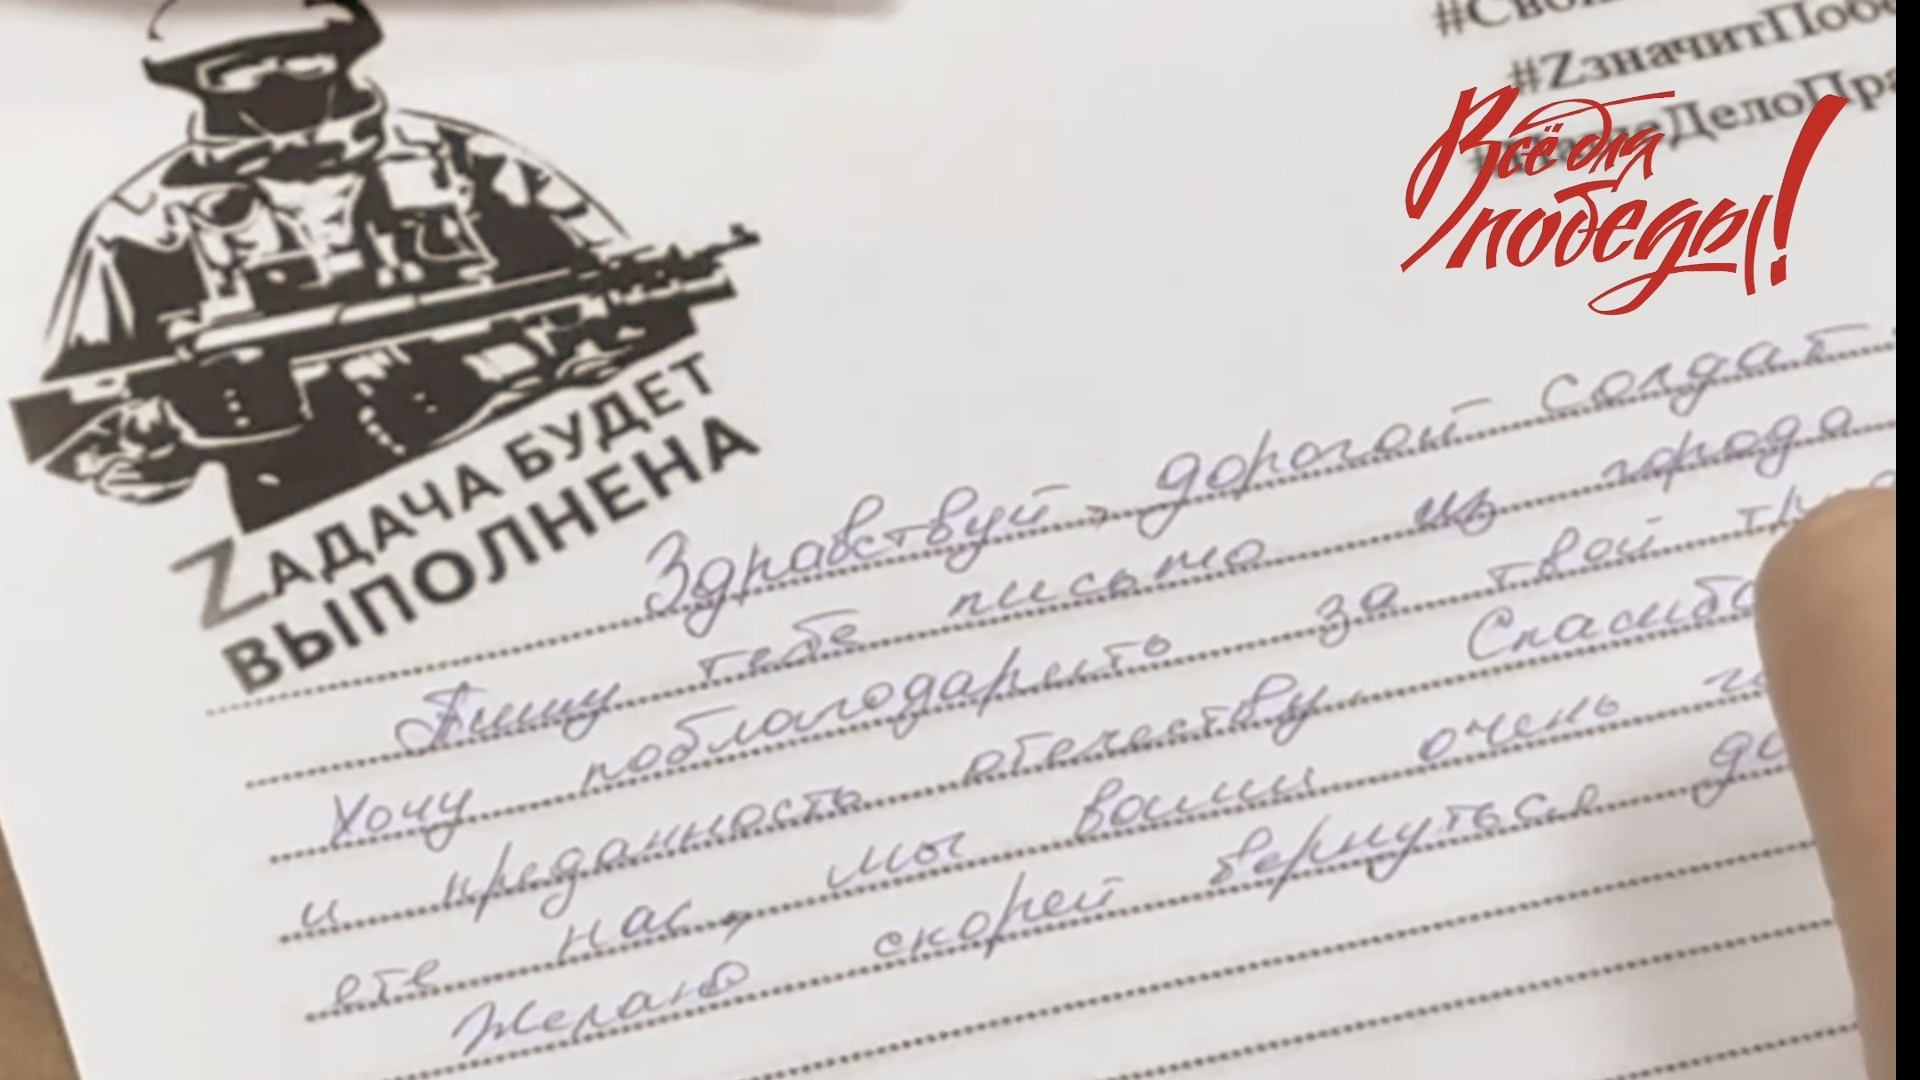 #Zзначит
Всё для
победы!
ZАДАЧА БУДЕТ
ВЫПОЛНЕНА
Здравствуй, дорогой солдат
Пишу тебе письмо из города
Хочу поблагодарить за твой
и преданность отечеству. Спасибо
ете нас, мы вами очень
Желаю скорей вернуться